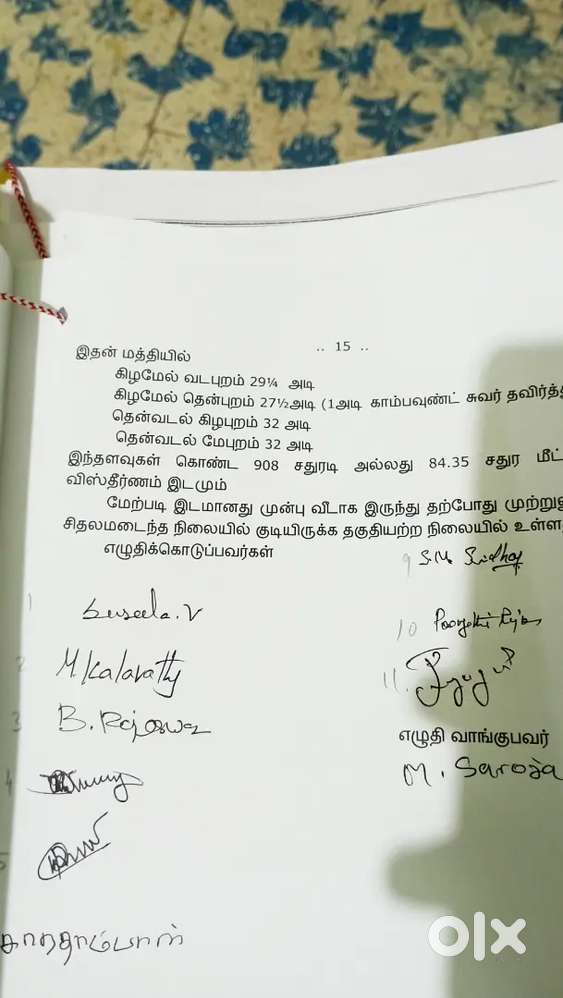 .. 15 ..
இதன் மத்தியில்
கிழமேல் வடபுறம் 29¼ அடி
கிழமேல் தென்புறம் 27½அடி (1அடி காம்பவுண்ட் சுவர் தவிர்த்
தென்வடல் கிழபுறம் 32 அடி
தென்வடல் மேபுறம் 32 அடி
இந்தளவுகள் கொண்ட 908 சதுரடி அல்லது 84.35 சதுர மீட்
விஸ்தீர்ணம் இடமும்
மேற்படி இடமானது முன்பு வீடாக இருந்து தற்போது முற்று
சிதலமடைந்த நிலையில் குடியிருக்க தகுதியற்ற நிலையில் உள்ள
எழுதிக்கொடுப்பவர்கள்
9 S.M
1 Suseela.V
10
2 M Kalavathy
11.
3 B.
எழுதி வாங்குபவர்
M. Saroja
4
5
காந்தாம்பாள்
olx